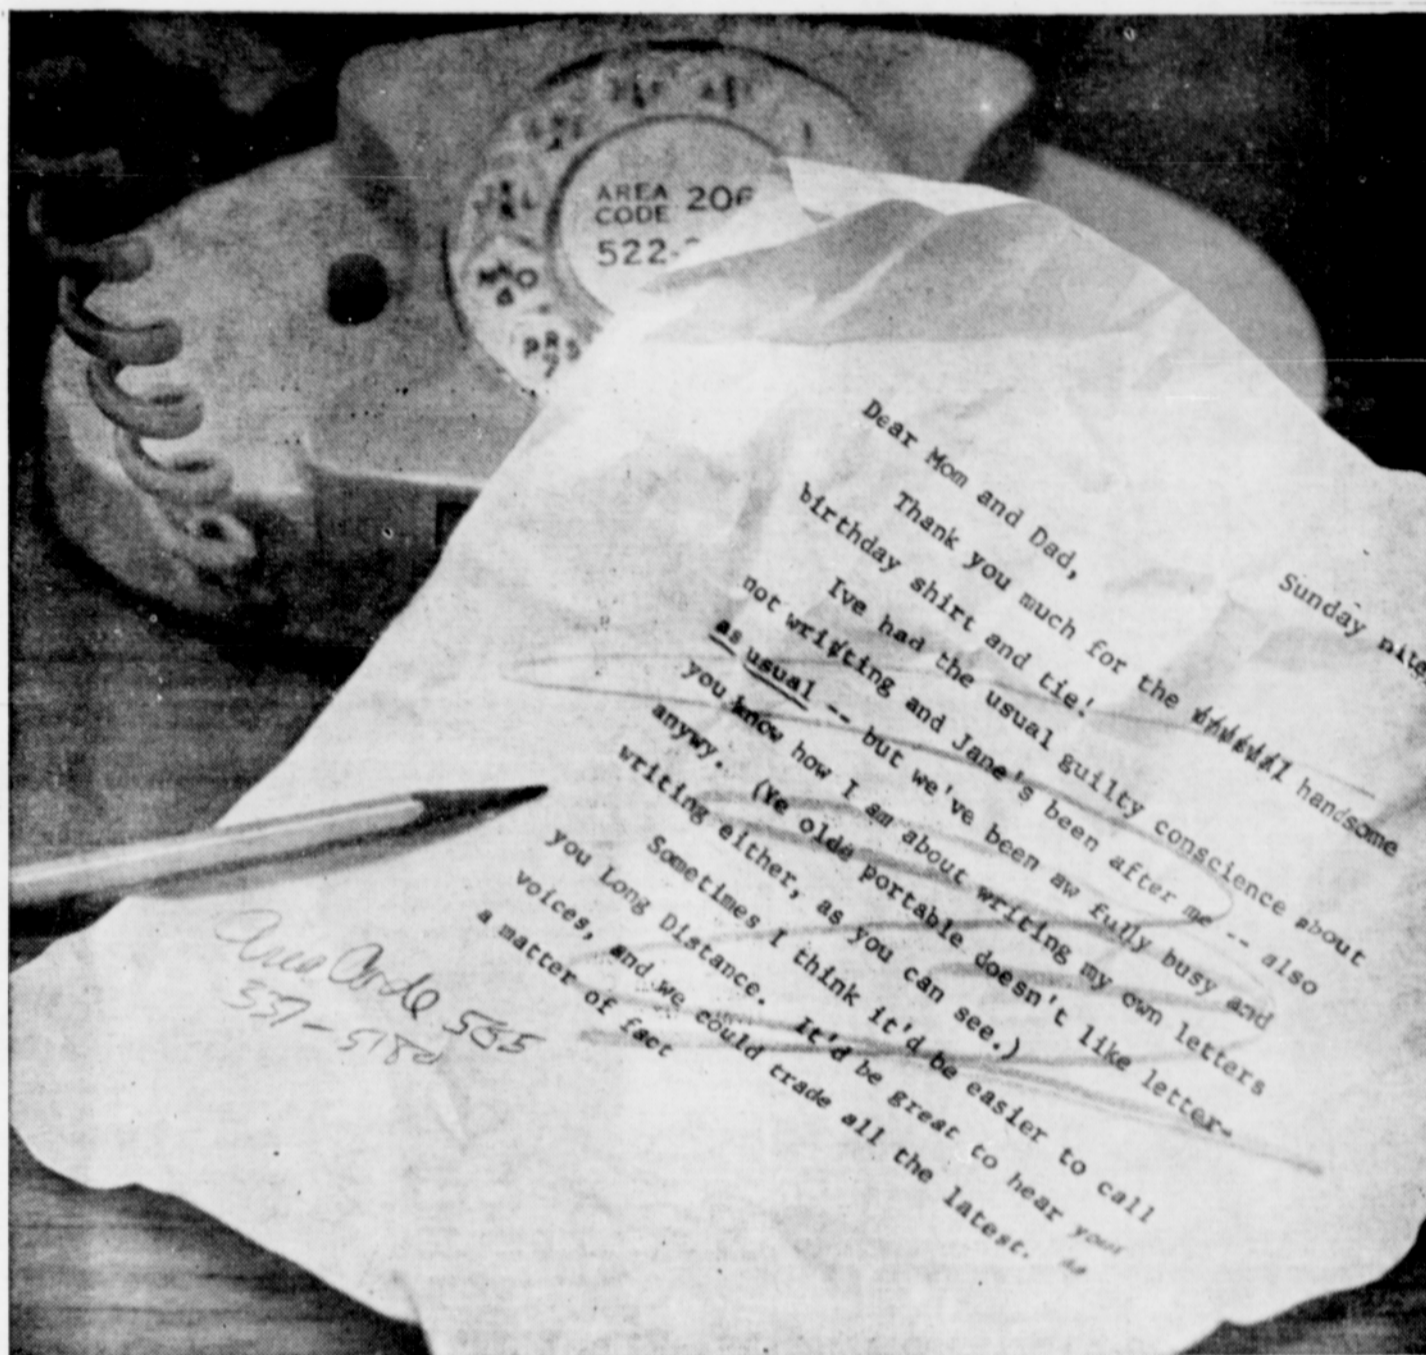 ABC
2
1
JKL
5
MNO
6
PRS
7
AREA
CODE 206
522-
Sunday nite
Dear Mom and Dad,
Thank you much for the handsome
birthday shirt and tie!
Ive had the usual guilty conscience about
not wristing and Jane's been after me -- also
as usual -- but we've been aw fully busy and
you know how I am about writing my own letters
anywy. (Ye olde portable doesn't like letter-
writing either, as you can see.)
Sometimes I think it'd be easier to call
you Long Distance. It'd be great to hear your
voices, and we could trade all the latest. As
a matter of fact
Area Code 505
337-5180